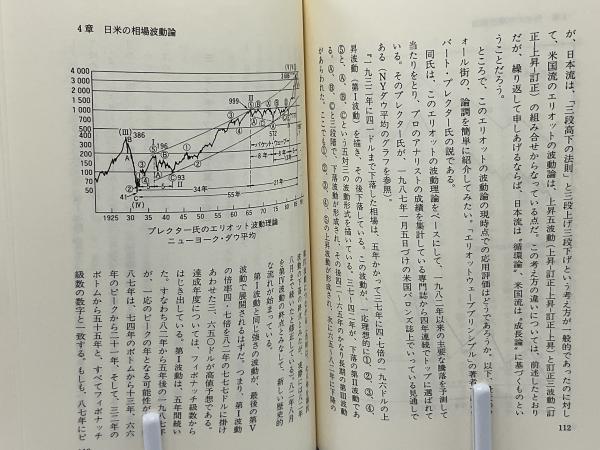 が、日本流は、「三段高下の法則」と三段上げ三段下げという考え方が一般的であったのに対し
て、米国流のエリオットの波動論は、上昇五波動（上昇｜訂正｜上昇｜訂正｜上昇）と訂正三波動（訂
正｜上昇｜訂正）の組み合せからなっている点だ。この考え方の違いについては、前述したとおり
だが、繰り返して申しあげるならば、日本流は〝循環論〟、米国流は〝成長論〟に基づくものとい
うことだろう。
ところで、このエリオットの波動論の現時点での応用評価はどうであろうか。以下
オール街の、論調を簡単に紹介してみたい。「エリオットウェーブプリンシプル」の著者
バート・プレクター氏の説である。
同氏は、このエリオットの波動理論をベースにして、一九八二年以来の主要な騰落を予測して
当たりをとり、プロのアナリストの成績を集計している専門誌から四年連続でトップに選ばれて
いる。そのプレクター氏が、一九八七年一月五日づけの米国バロンズ誌上でいっている見通しで
ある（NYダウ平均のグラフを参照）。
「一九三二年に四一ドルまで下落した相場は、五年かかって三七年に四・七倍の一九六ドルの上
昇波動（第Ⅰ波動）を描き、その後下落している。この波動が、一応理論的に①、②、③、④、
⑤と、Ⓐ、Ⓑ、Ⓒという五対三の波動形式を描いている。三七〜四二年が、下落の第Ⅱ波動であ
る。Ⓐ、Ⓑ、Ⓒと三段階で、下落波動が形成され、その後四二〜六五年のかなり長期の第Ⅲ波動
があらわれた。ここでも①、②、③、④、⑤の上昇波動が形成され、次に六五〜八二年に下降の
112
4章 日米の相場波動論
4 000
3 000
2 000
1 000
500
400
300
200
100
50
25
1925 30 35 40 45 50 55 60 65 70 75 80 85 90
386
196
93
41
999
572
34年
55年
8年
13年
21年
プレクター氏のエリオット波動理論
ニューヨーク・ダウ平均
八月まで続いたと修正している
を第Ⅳ波動の終点とみなして、新しい歴史的
な流れが始まっている。
第Ⅰ波動と同じ強さの波動が、最後の第Ⅴ
波動で展開されるはずだ。つまり、第Ⅰ波動
の倍率四・七倍を八二年の七七七ドルに掛け
あわせた三、六五〇ドルが高値予想である。
達成年度については、フィボナッチ級数から
はじき出している。第Ⅰ波動は、五年間続い
た。すなわち八二年から五年後の一九八七年
が、一応のピークの年となる可能性が
八七年は、七四年のボトムから十三年、六六
年のピークから二十一年、そして、三二年の
ボトムから五十五年と、すべてフィボナッチ
級数の数字と一致する。もしも、八七年にピ